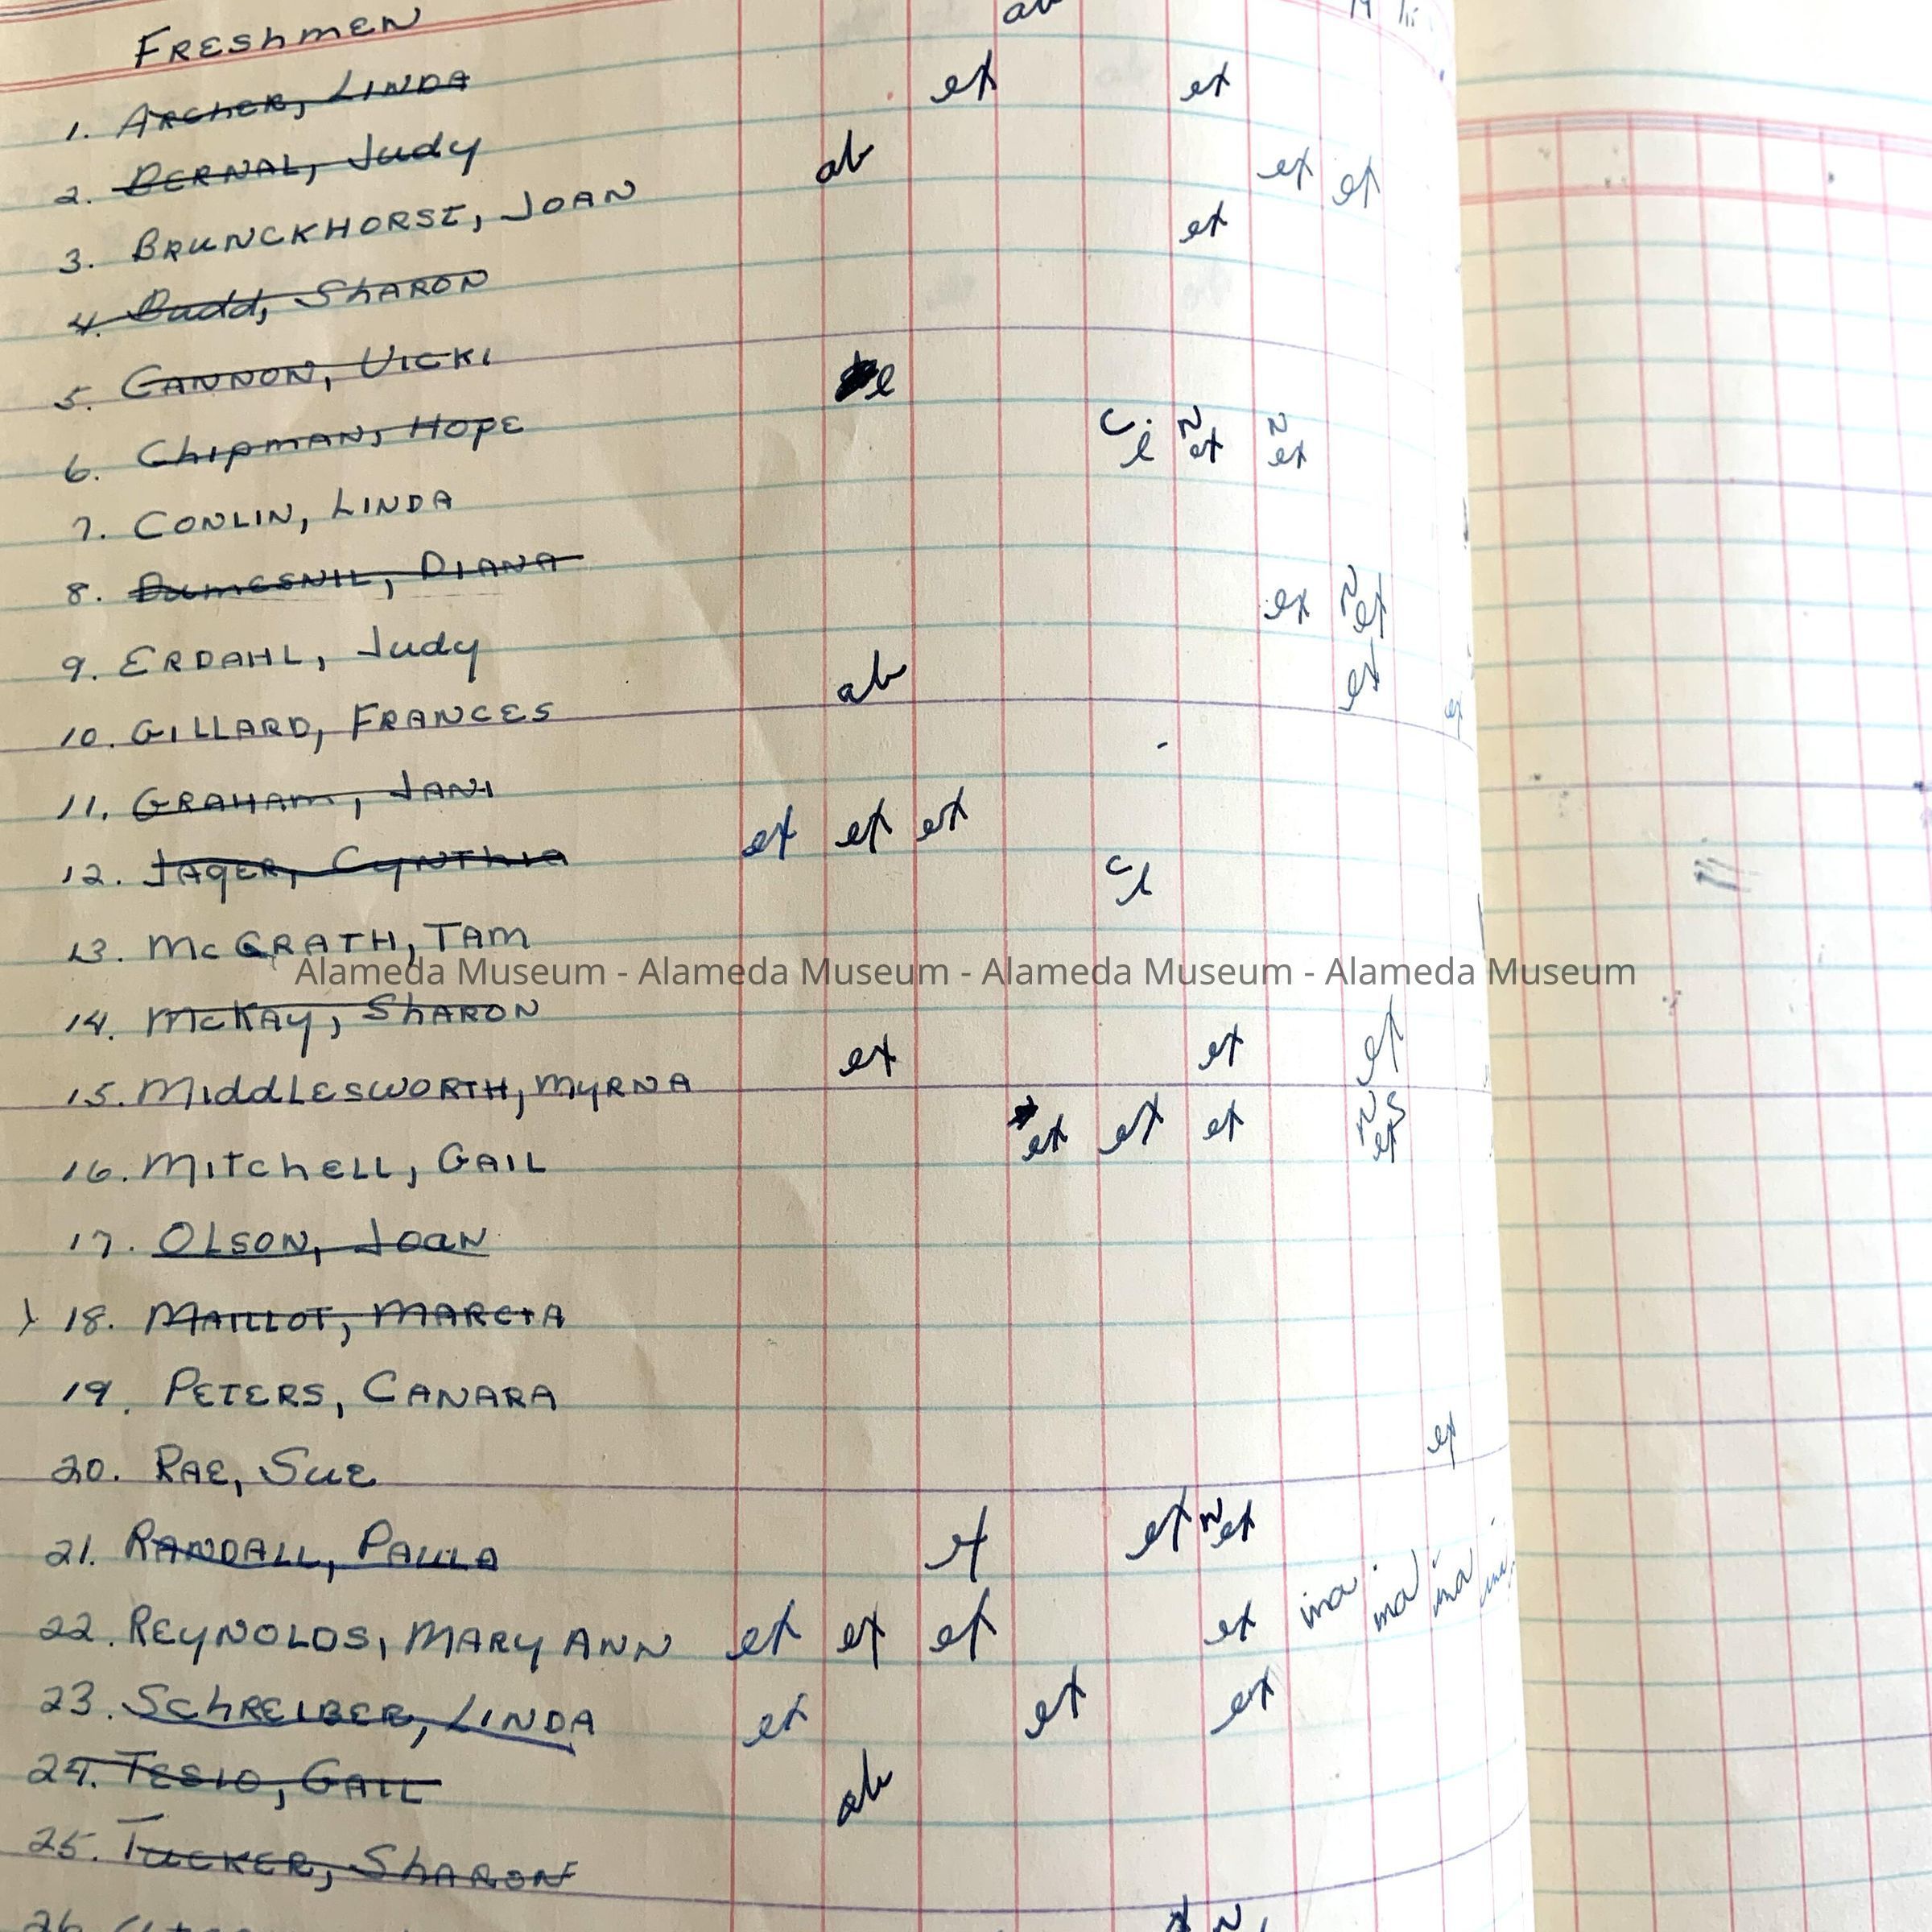 ab
FRESHMEN
1. ARCHER, LINDA ex ex
2. BERNAL, Judy ab ex ex
3. BRUNCKHORST, JOAN ex
4. Budd, SHARON
5. CANNON, VICKI l
6. CHIPMAN, HOPE C l N ex N ex
7. CONLIN, LINDA
8. DUMESNIL, DIANA ex N ex
9. ERDAHL, Judy ab ex
10. GILLARD, FRANCES ex
11. GRAHAM, JANI ex ex ex
12. JAGER, CYNTHIA C l
13. McGRATH, TAM
Alameda Museum - Alameda Museum - Alameda Museum - Alameda Museum
14. McKAY, SHARON ex ex ex
15. MIDDLESWORTH, MYRNA ex ex ex N S ex
16. MITCHELL, GAIL
17. OLSON, JOAN
18. MAILLOT, MARCIA
19. PETERS, CANARA
20. RAE, SUE ex
21. RANDALL, PAULA ex ex N ex
22. REYNOLDS, MARY ANN ex ex ex ex ina ina ina ina
23. SCHREIBER, LINDA ex ex ex
24. TESIO, GAIL ab
25. TUCKER, SHARON
26.